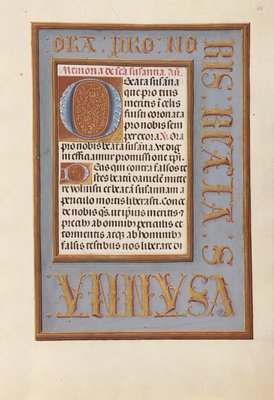 ORA PRO NO
BIS BEATA S
VSANNA
Memoria de scã susanna. Añ.
O Beata susana
que pro tuis
meritis ĩ celis
fuisti coronata
pro nobis sem
per exora Xp̃. Ora
pro nobis beata susana. Ut dig
ni efficiamur promissione xp̃i.
Deus qui contra falsos te
stes beati danielis meri
tis voluisti et beatã susannam a
periculo mortis liberasti. Conce
de nobis q̃s. ut ipius meritis et
precib9 ab omnib9 periculis et
tormentis atq3 ab hominib9
falsis testibus nos liberare di